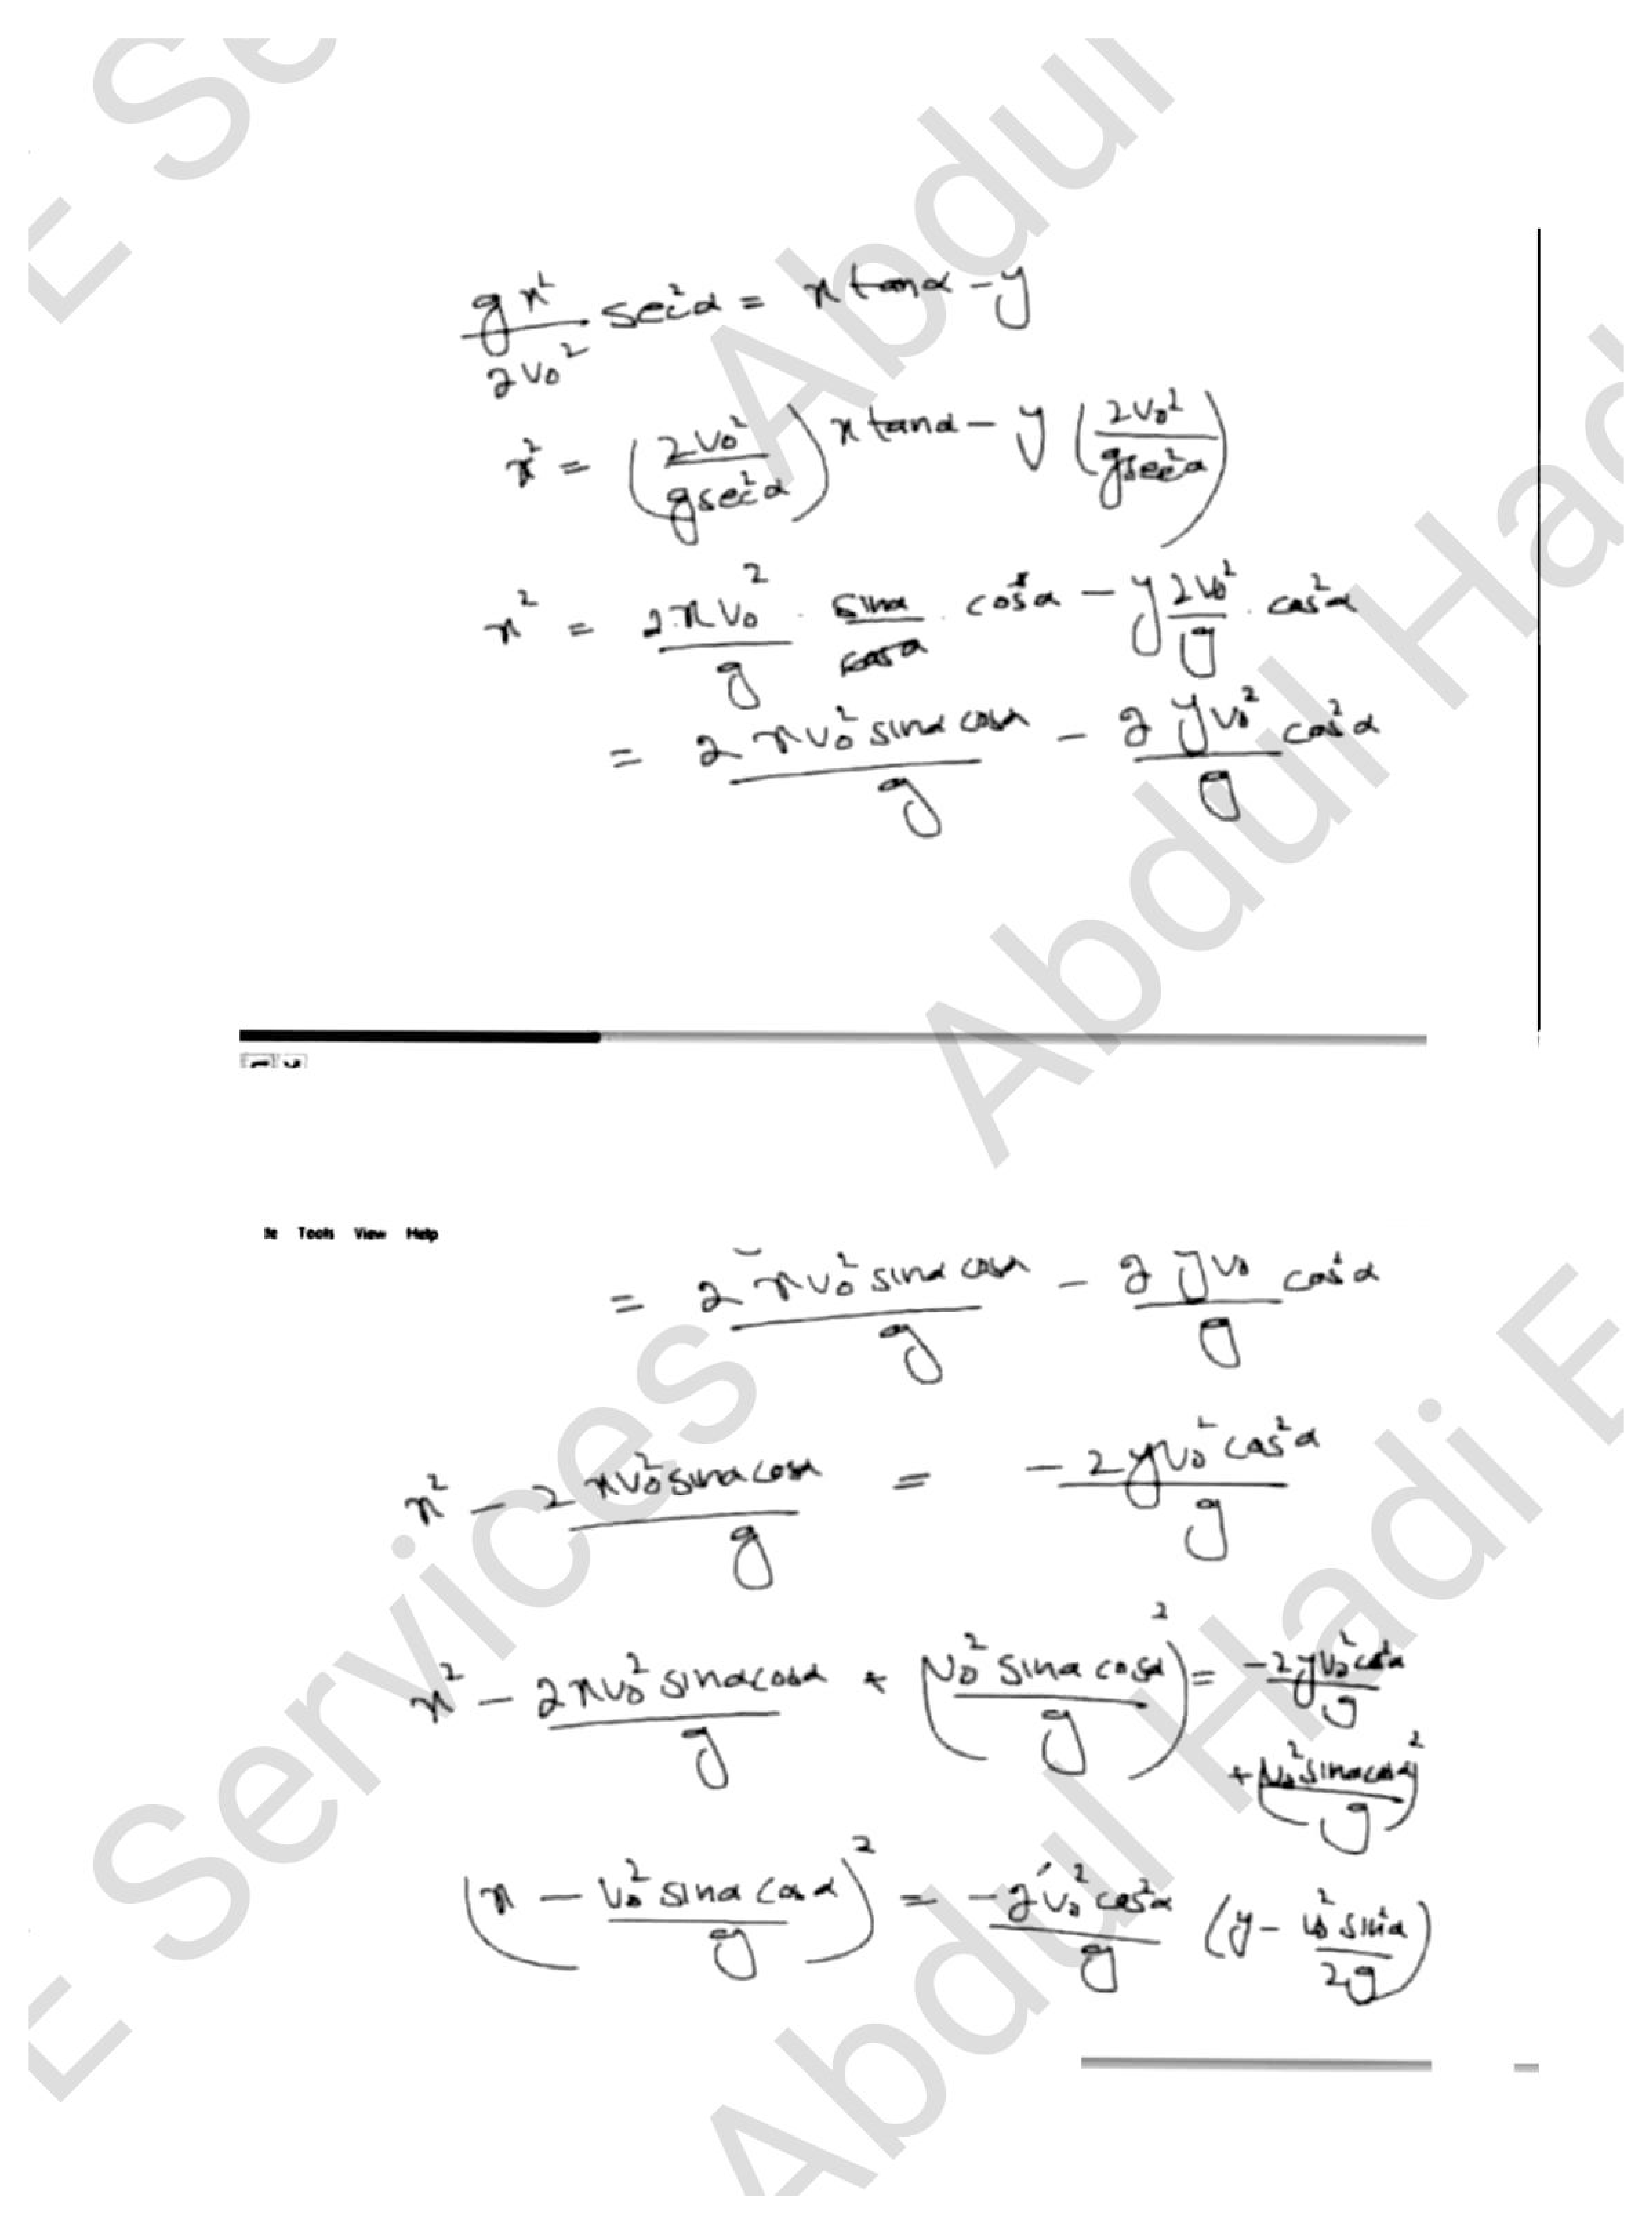 E Services
Abdul Hadi E
gx²/2v₀² sec²α = x tanα - y
x² = (2v₀²/g sec²α) x tanα - y (2v₀²/g sec²α)
x² = 2xv₀²/g · sinα/cosα · cos²α - y 2v₀²/g · cos²α
= 2xv₀² sinα cosα/g - 2yv₀²/g cos²α
Tools View Help
= 2xv₀² sinα cosα/g - 2yv₀/g cos²α
x² - 2xv₀² sinα cosα/g = -2yv₀² cos²α/g
x² - 2xv₀² sinα cosα/g + (v₀² sinα cosα/g)² = -2yv₀² cos²α/g
+ (v₀² sinα cosα/g)²
(x - v₀² sinα cosα/g)² = -2v₀² cos²α/g (y - v₀² sin²α/2g)